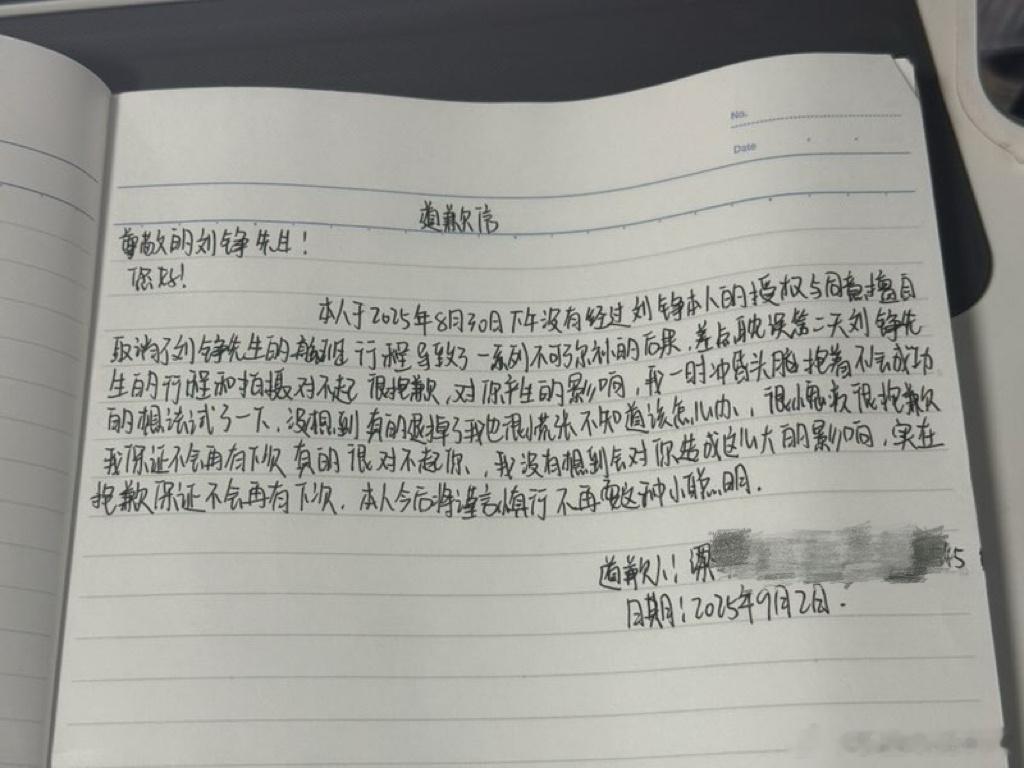 No.
Date
道歉信
尊敬的刘铮先生！
您好！
本人于2025年8月30日下午没有经过刘铮本人的授权与同意擅自
取消了刘铮先生的航班行程导致了一系列不可弥补的后果，差点耽误第二天刘铮先
生的行程和拍摄对不起 很抱歉，对你产生的影响，我一时冲昏头脑抱着不会成功
的想法试了一下，没想到真的退掉了我也很慌张不知道该怎么办，很小愚衷很抱歉
我保证不会再有下次 真的很对不起你，我没有想到会对你造成这么大的影响，实在
抱歉保证不会再有下次，本人今后将谨言慎行 不再耍这种小聪明．
道歉人：
45
日期：2025年9月2日．